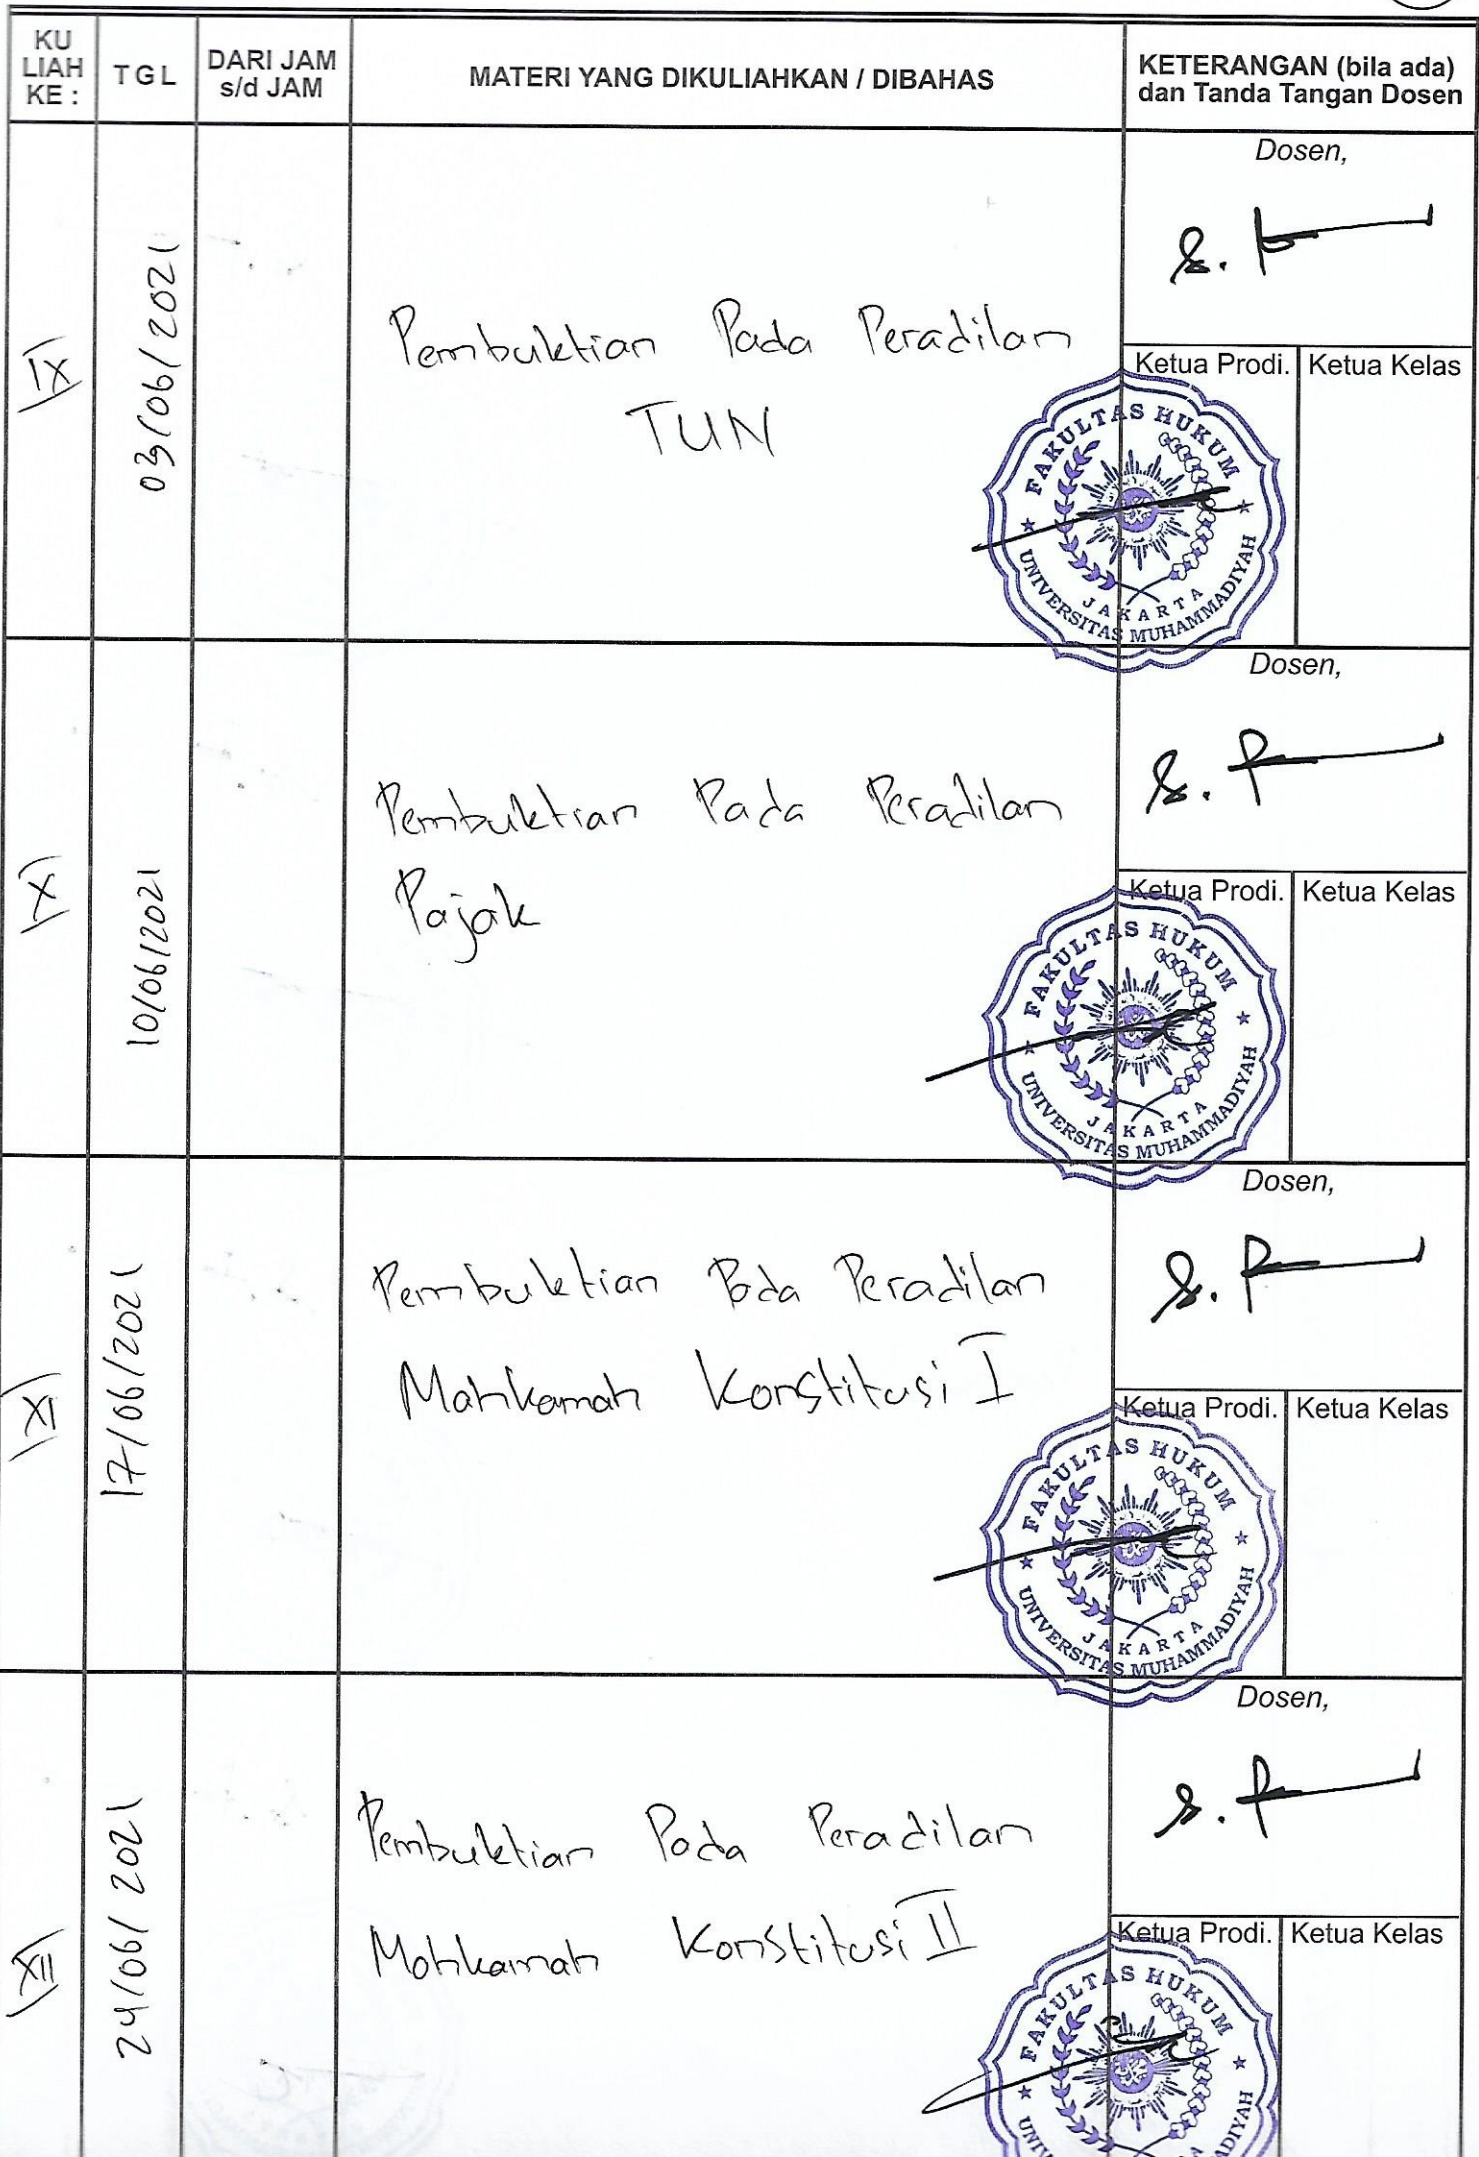 KU
LIAH
KE :
TGL
DARI JAM
s/d JAM
MATERI YANG DIKULIAHKAN / DIBAHAS
KETERANGAN (bila ada)
dan Tanda Tangan Dosen
IX
03/06/2021
Pembuktian Pada Peradilan
TUN
Dosen,
Ketua Prodi.
Ketua Kelas
FAKULTAS HUKUM
JAKARTA
UNIVERSITAS MUHAMMADIYAH
X
10/06/2021
Pembuktian Pada Peradilan
Pajak
Dosen,
Ketua Prodi.
Ketua Kelas
FAKULTAS HUKUM
JAKARTA
UNIVERSITAS MUHAMMADIYAH
XI
17/06/2021
Pembuktian Pada Peradilan
Mahkamah Konstitusi I
Dosen,
Ketua Prodi.
Ketua Kelas
FAKULTAS HUKUM
JAKARTA
UNIVERSITAS MUHAMMADIYAH
XII
24/06/2021
Pembuktian Pada Peradilan
Mahkamah Konstitusi II
Dosen,
Ketua Prodi.
Ketua Kelas
FAKULTAS HUKUM